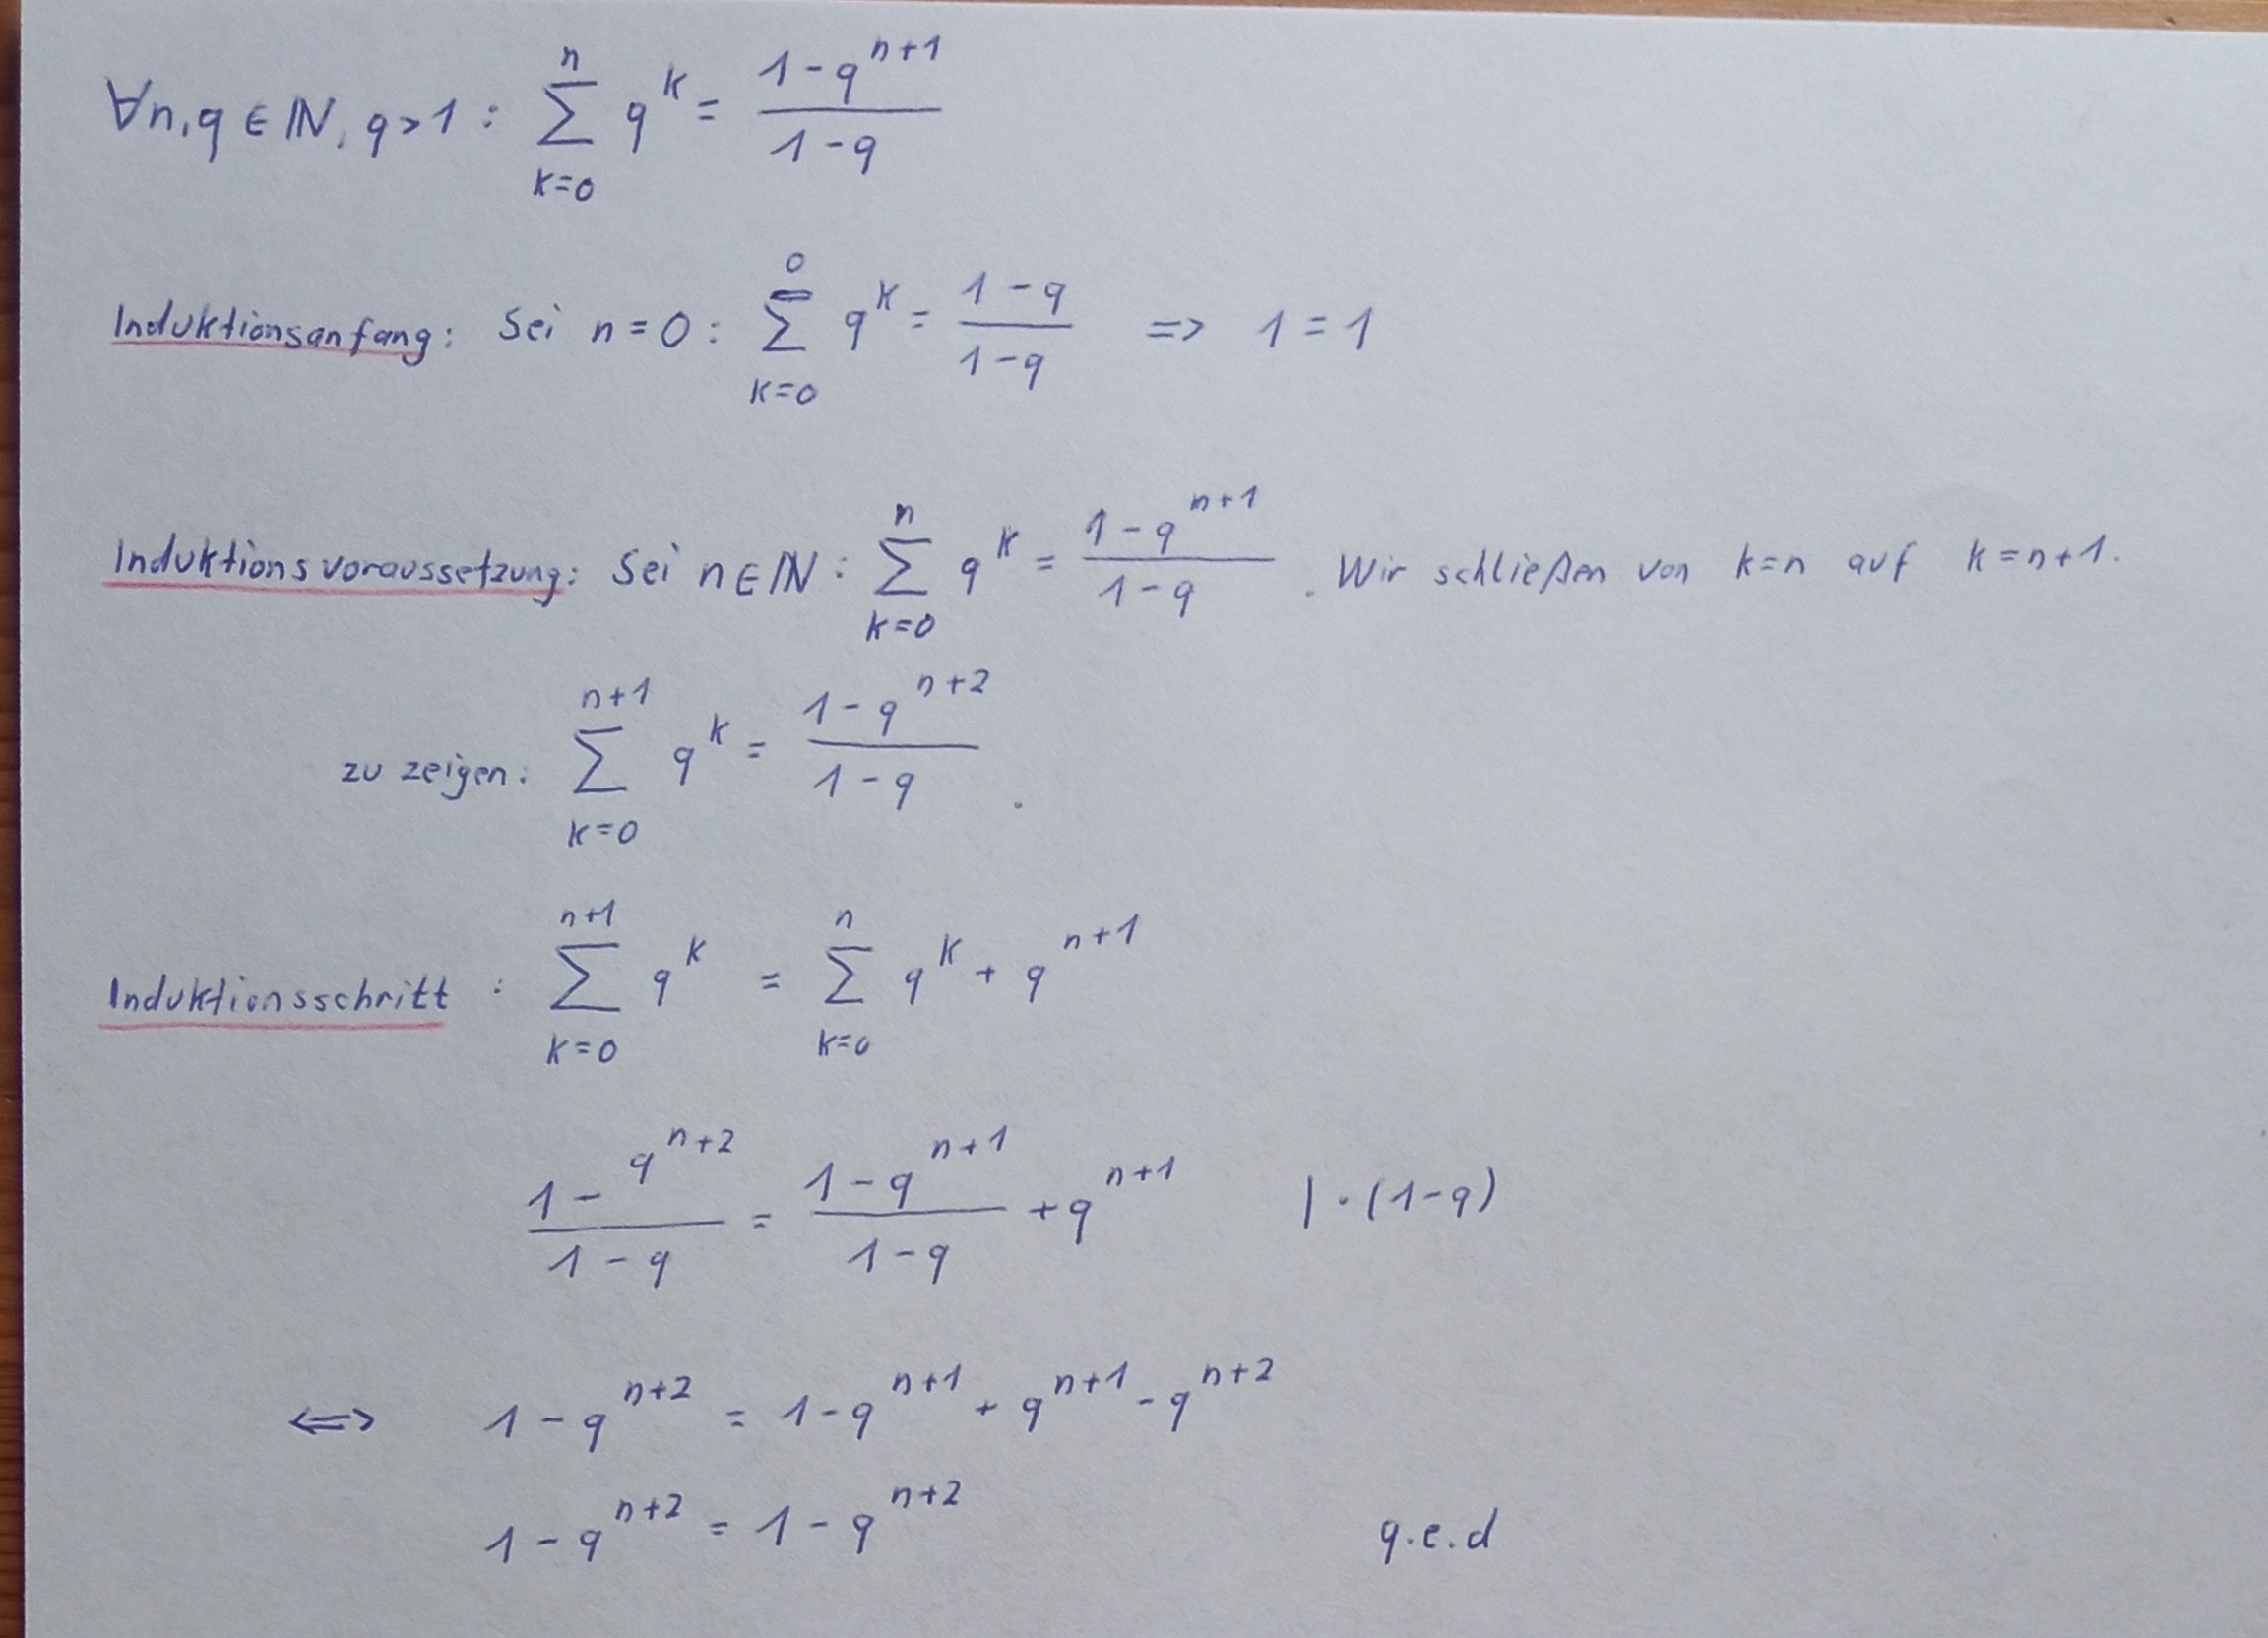 ∀n,q ∈ ℕ, q>1 : ∑_{k=0}^{n} q^k = (1-q^{n+1})/(1-q)
Induktionsanfang: Sei n=0 : ∑_{k=0}^{0} q^k = (1-q)/(1-q) => 1=1
Induktionsvoraussetzung: Sei n∈ℕ : ∑_{k=0}^{n} q^k = (1-q^{n+1})/(1-q) . Wir schließen von k=n auf k=n+1.
zu zeigen: ∑_{k=0}^{n+1} q^k = (1-q^{n+2})/(1-q) .
Induktionsschritt : ∑_{k=0}^{n+1} q^k = ∑_{k=0}^{n} q^k + q^{n+1}
(1-q^{n+2})/(1-q) = (1-q^{n+1})/(1-q) + q^{n+1} | · (1-q)
<=> 1-q^{n+2} = 1-q^{n+1} + q^{n+1} - q^{n+2}
1-q^{n+2} = 1-q^{n+2} q.e.d